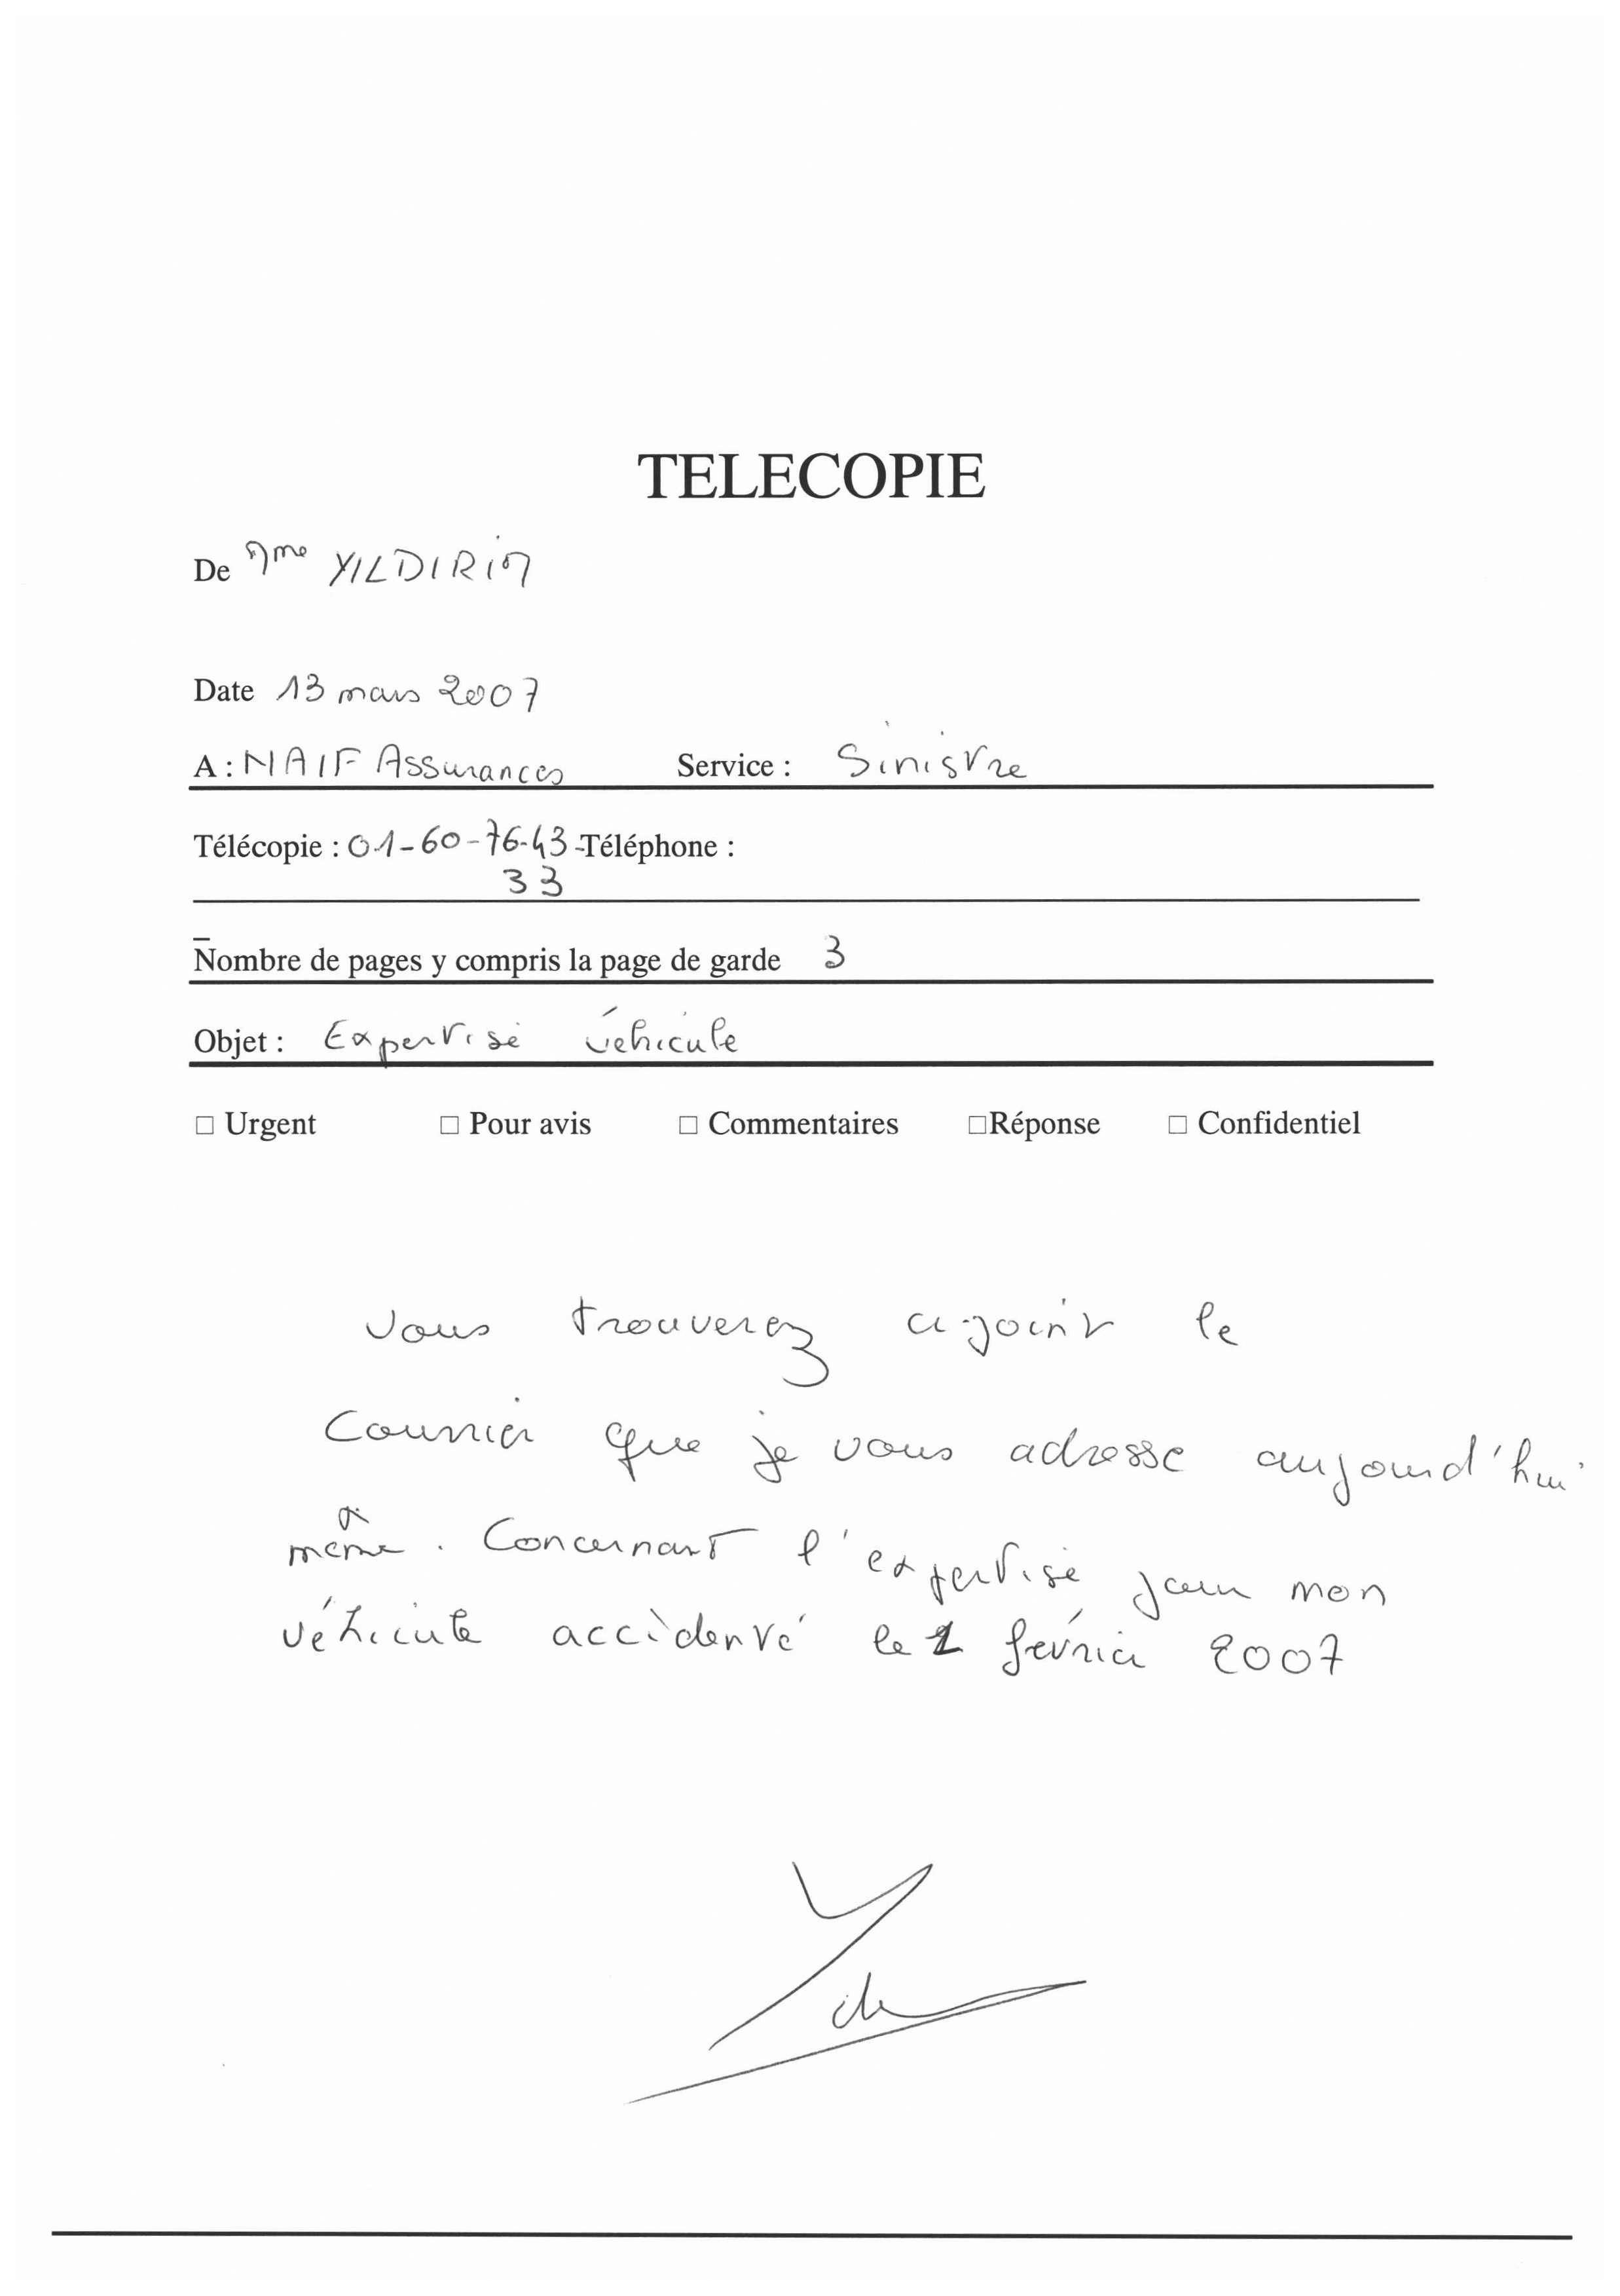 TELECOPIE
De Mme YILDIRIM
Date 13 mars 2007
A : MAIF Assurances Service : Sinistre
Télécopie : 01-60-76-43- Téléphone :
33
Nombre de pages y compris la page de garde 3
Objet : Expertise véhicule
□ Urgent □ Pour avis □ Commentaires □Réponse □ Confidentiel
Vous trouverez ci-joint le
Courrier que je vous adresse aujourd'hui
même. Concernant l'expertise pour mon
véhicule accidenté le février 2007